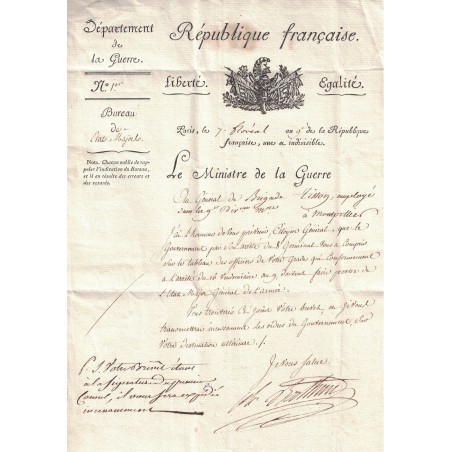 Département
de
la Guerre.
N.º 1er
Bureau
de
États Majors
Nota. Chacun oublie de rappeler l'indication du Bureau, et il en résulte des erreurs et des retards.
République française.
Liberté. Egalité.
Paris, le 7 floréal an 9 de la République
française, une et indivisible.
Le Ministre de la Guerre
Au Général de Brigade employé
dans la 9e Don mre à Montpellier
J'ai l'honneur de vous prévenir, Citoyen Général, que le
Gouvernement par Arrêté du 8 Germinal vous a compris
sur le tableau des officiers de votre grade qui conformément
à l'arrêté du 16 Vendémiaire an 9 doivent faire partie de
l'Etat Major Général de l'armée.
Vous trouverez ci joint votre brevet, je vous
transmettrai incessamment les ordres du Gouvernement, sur
votre destination ultérieure.
Je vous salue
P. S. Votre Brevet étant
à la signature du premier
Consul, il vous sera expédié
incessamment